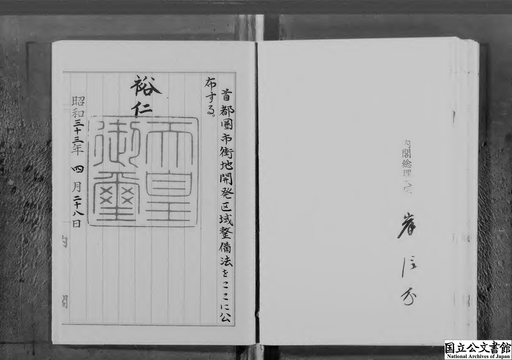 首都圏市街地開発区域整備法をここに公
布する
裕仁
天皇
御璽
昭和三十三年四月二十八日
内閣
内閣総理大臣 岸信介
国立公文書館
National Archives of Japan